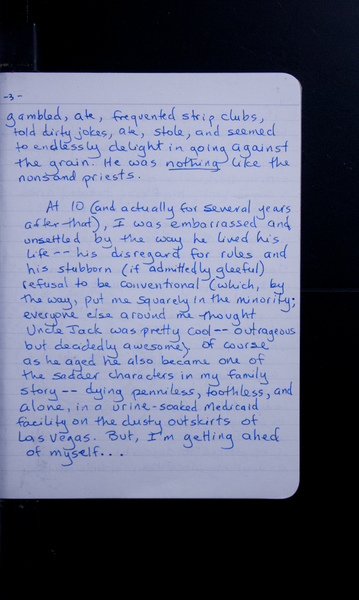 -3-
gambled, ate, frequented strip clubs,
told dirty jokes, ate, stole, and seemed
to endlessly delight in going against
the grain. He was nothing like the
nuns and priests.
At 10 (and actually for several years
after that), I was embarrassed and
unsettled by the way he lived his
life -- his disregard for rules and
his stubborn (if admittedly gleeful)
refusal to be conventional (which, by
the way, put me squarely in the minority;
everyone else around me thought
Uncle Jack was pretty cool -- outrageous
but decidedly awesome). Of course
as he aged he also became one of
the sadder characters in my family
story -- dying penniless, toothless, and
alone, in a urine-soaked Medicaid
facility on the dusty outskirts of
Las Vegas. But, I'm getting ahed
of myself...